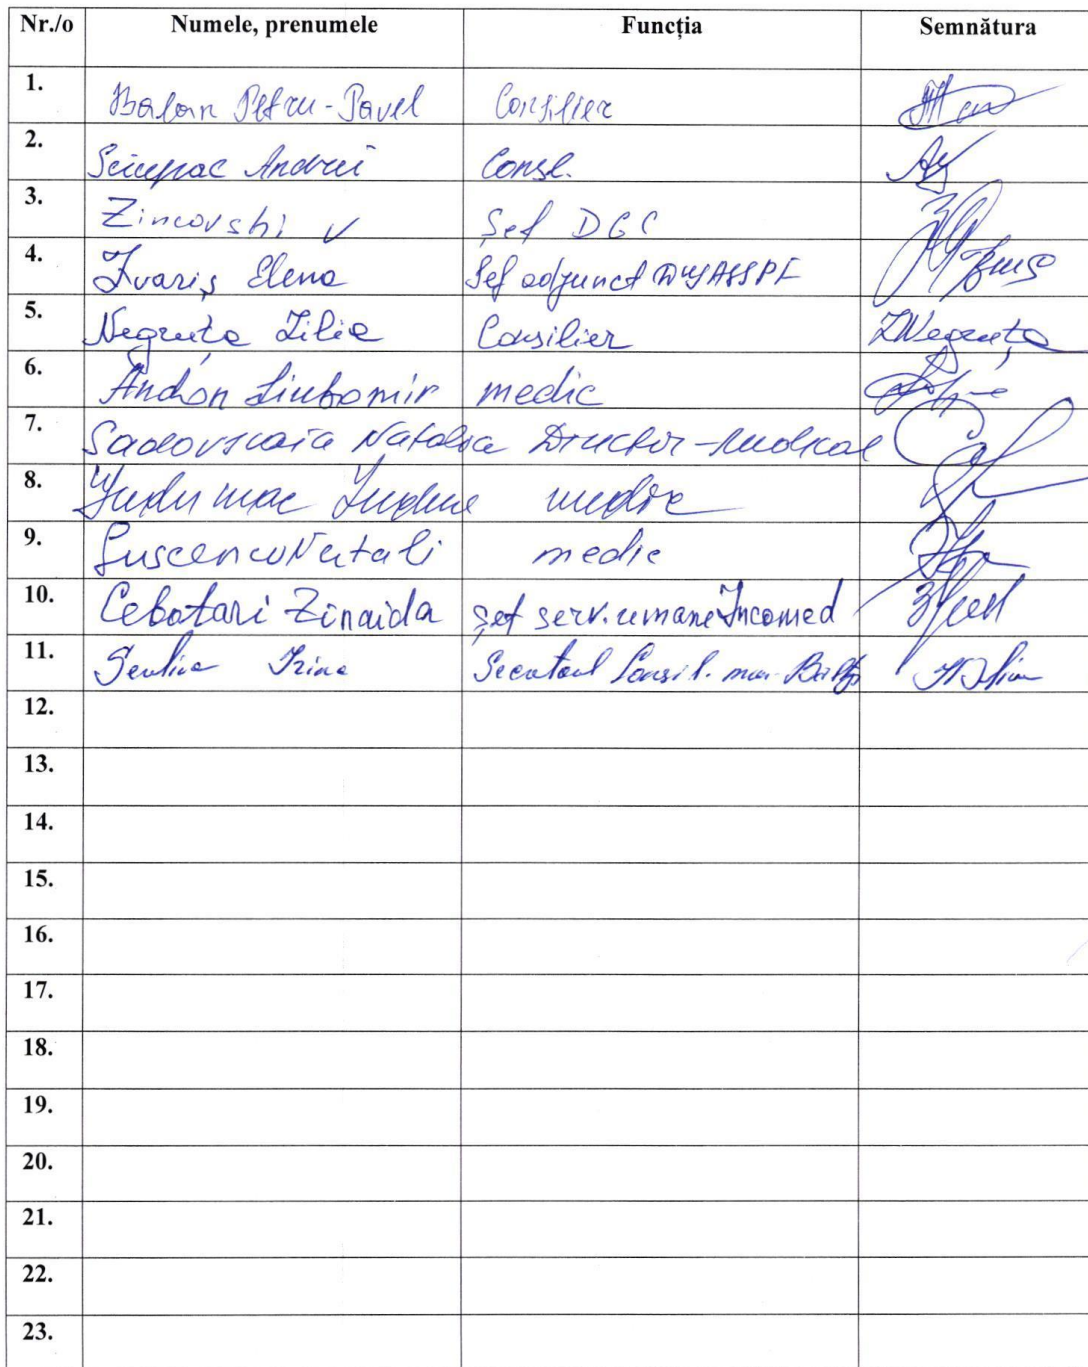 Nr./o Numele, prenumele Funcția Semnătura
1. Balan Petru-Pavel Consilier
2. Andrei Consl.
3. Zincovshi V Șef DGC
4. Zvariș Elena Șef adjunct
5. Negruța Lilia Consilier LNegruța
6. Andon Liubomir medic
7. Sadovscaia Natalia Director-Medical
8. medic
9. Natali medic
10. Cebotari Zinaida șef serv. umane Incomed
11. Irina
12.
13.
14.
15.
16.
17.
18.
19.
20.
21.
22.
23.